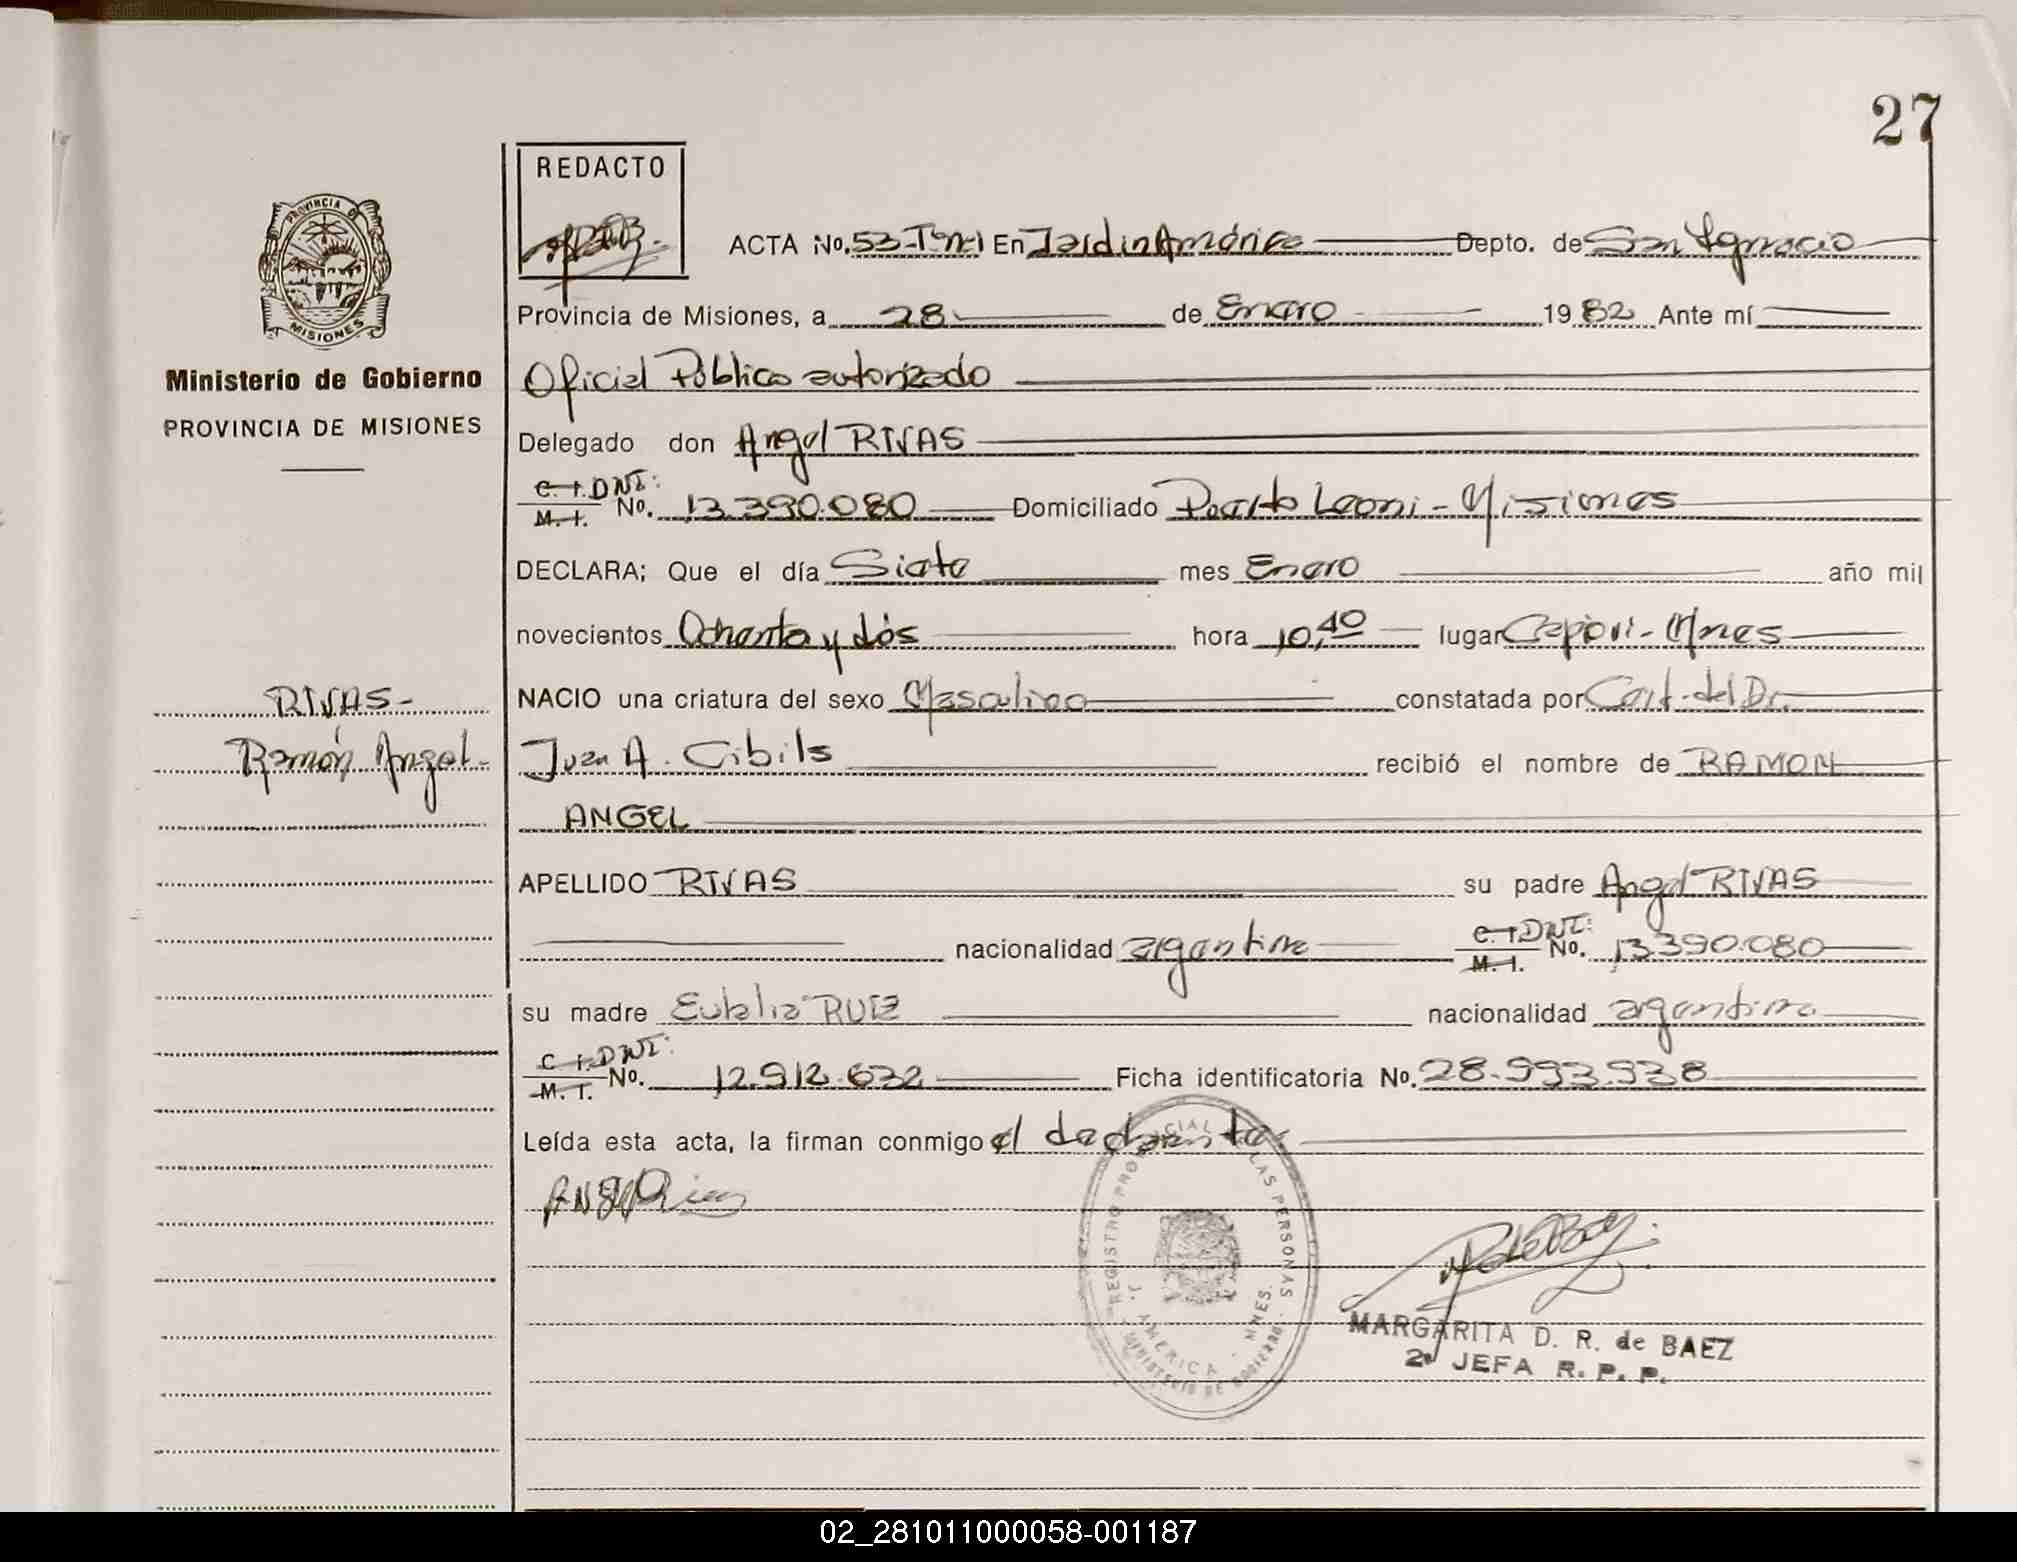 27
REDACTO
PROVINCIA DE
MISIONES
ACTA No. 53-Tºm-I En Jardin América Depto. de San Ignacio
Provincia de Misiones, a 28 de Enero 1982 Ante mí
Ministerio de Gobierno
PROVINCIA DE MISIONES
Oficial Público autorizado
Delegado don Angel RIVAS
C. I. DNI:
M. I. No. 13.390.080 Domiciliado Puerto Leoni - Misiones
DECLARA; Que el día Siete mes Enero año mil
novecientos Ochenta y dós hora 10,40 lugar Capiovi - Mnes
RIVAS-
Ramón Angel-
NACIO una criatura del sexo Masculino constatada por Cert. del Dr.
Juan A. Cibils recibió el nombre de RAMON
ANGEL
APELLIDO RIVAS su padre Angel RIVAS
nacionalidad argentina C. I. DNI: M. I. No. 13.390.080
su madre Eulalia RUIZ nacionalidad argentina
C. I. DNI:
M. I. No. 12.912.632 Ficha identificatoria No. 28.993.938
Leída esta acta, la firman conmigo el declarante.
REGISTRO PROVINCIAL DE LAS PERSONAS
J. AMERICA - MNES.
MINISTERIO DE GOBIERNO
MARGARITA D. R. de BAEZ
2ª JEFA R. P. P.
02_281011000058-001187